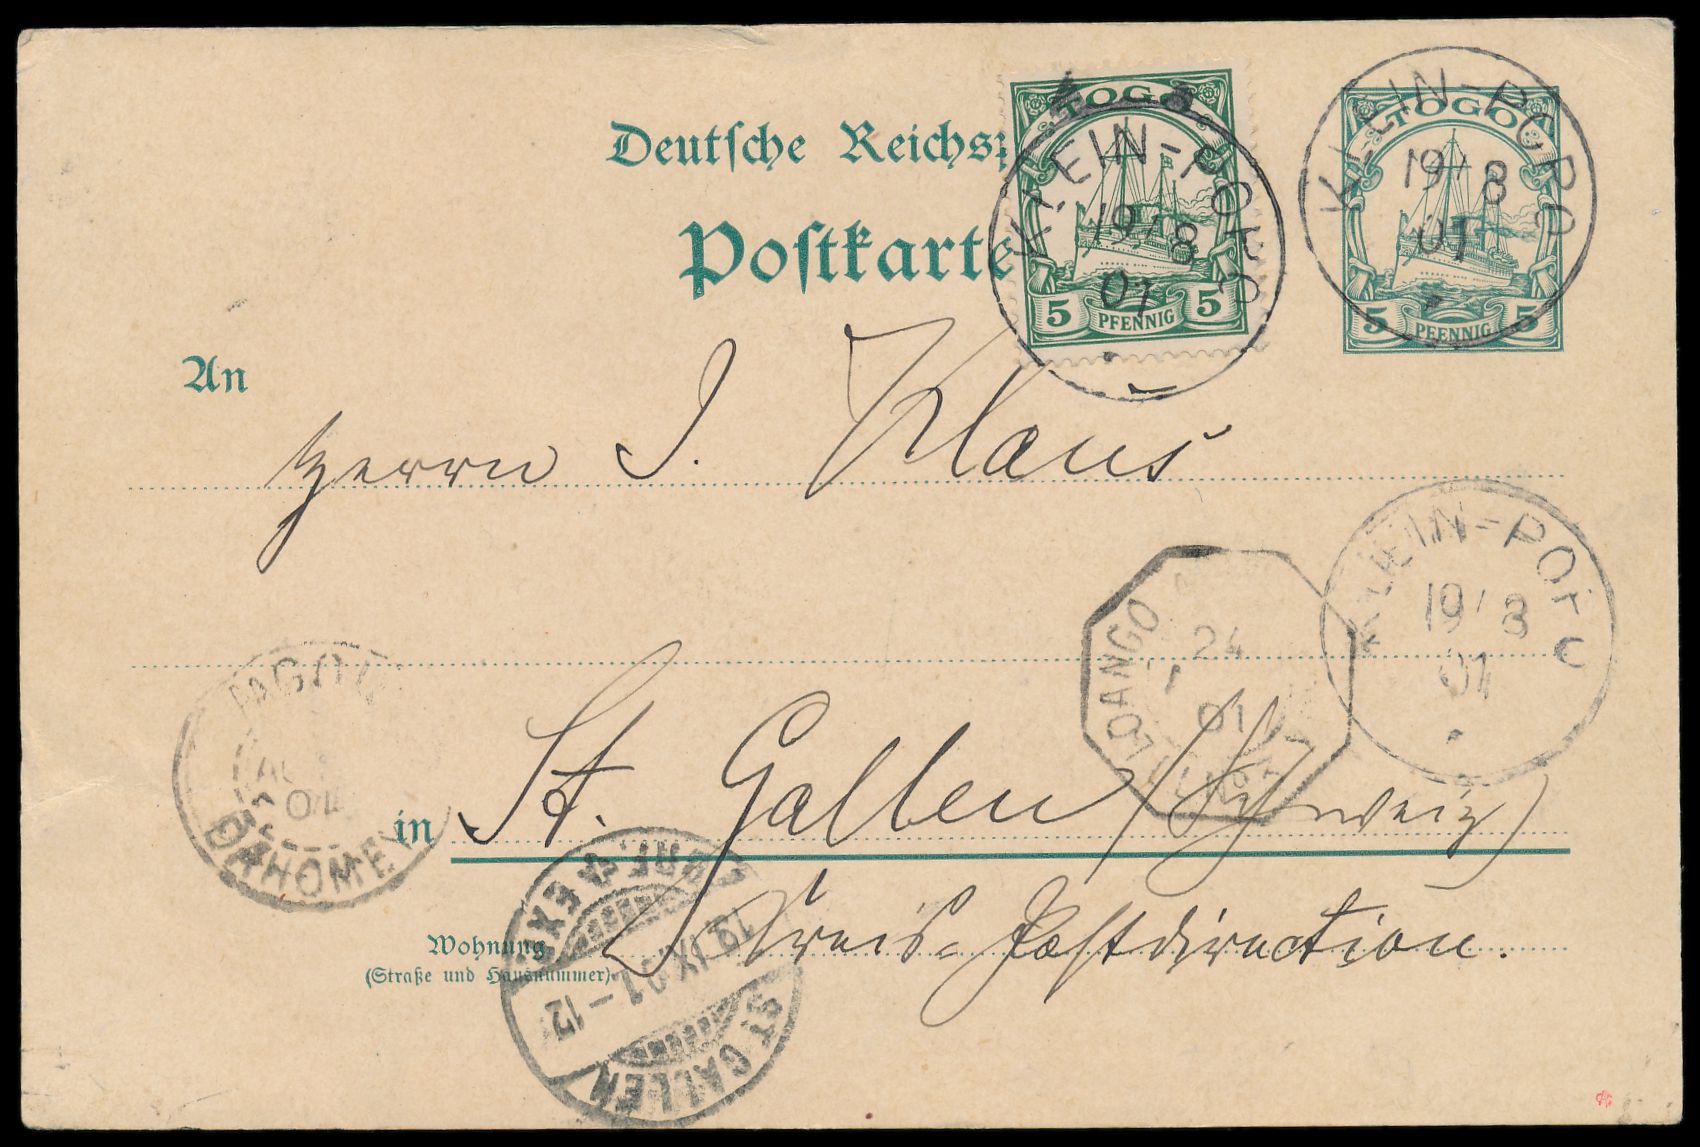 Deutsche Reichs-
Postkarte
TOGO
5 PFENNIG 5
KLEIN-POPO
19/8
01
TOGO
5 PFENNIG 5
KLEIN-POPO
19/8
01
An
Herrn J. Klaus
KLEIN-POPO
19/8
01
LOANGO
24
01
DAHOMEY
in St. Gallen (Schweiz)
Wohnung
(Straße und Hausnummer)
Kreis-Postdirection.
ST. GALLEN
19.IX.01-12